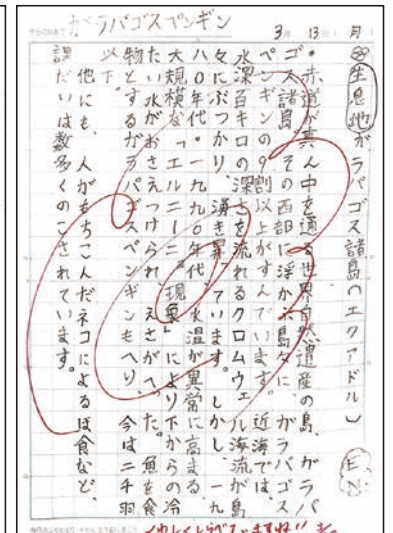 ガラパゴスペンギン
3月 13日( 月 )
生息地 ガラパゴス諸島(エクアドル)
・赤道が真ん中を通る世界自然遺産の島、ガラパ
ゴス諸島。その西部に浮かぶ島々に、ガラパゴス
ペンギンの9割以上がすんでいます。近海では、
水深百キロの深さを流れるクロムウェル海流が島
々にぶつかり、湧き昇っています。しかし、一九
八〇年代・一九九〇年代、水温が異常に高まる
大規模な「エルニーニョ現象」により下からの冷
たい水がおさえつけられ、えさがへった。魚を食
物とするガラパゴスペンギンもへり、今は二千羽
以下。
他にも、人がもちこんだネコによるほ食など、
課だいは数多くのこされています。
くわしくしらべていますね!!